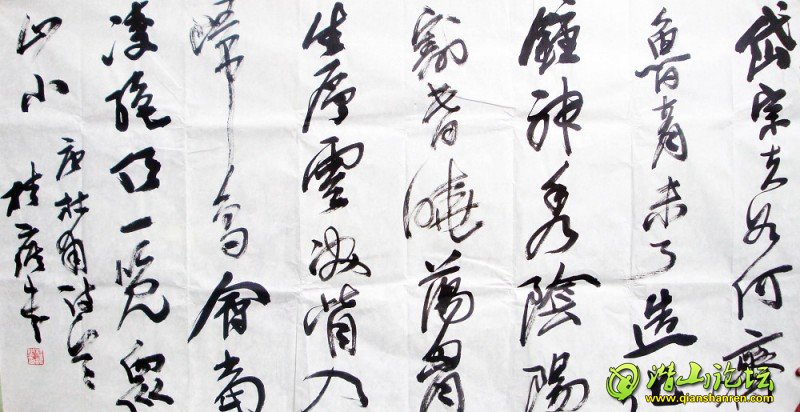 岱宗夫如何齊
魯青未了造
鍾神秀陰陽
割昏曉蕩胷
生層雲决眥入
歸鳥會當
凌絕頂一覽眾
山小
唐杜甫詩
潜山论坛
www.qianshanren.com